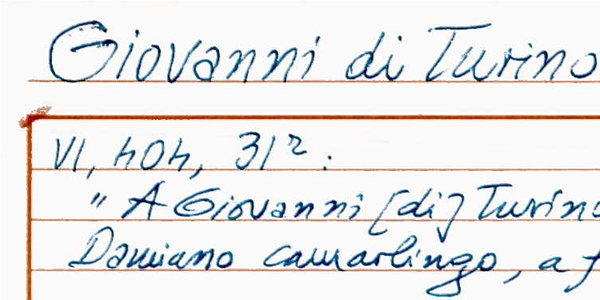 Giovanni di Turino
VI, 404, 31r:
"A Giovanni [di] Turino
Damiano camarlingo, a f